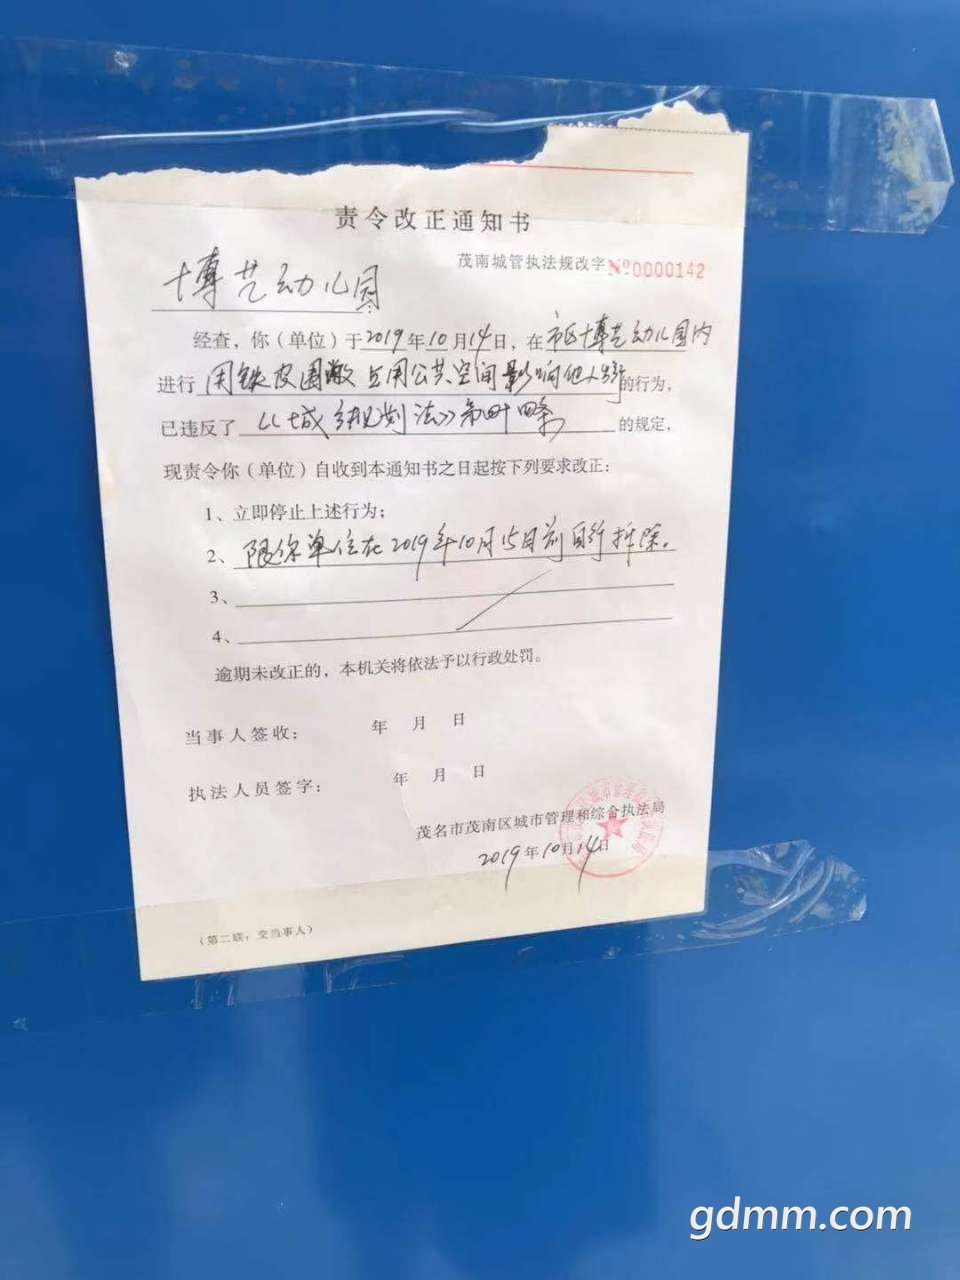 责令改正通知书
茂南城管执法规改字 №0000142
博艺幼儿园:
经查，你（单位）于2019年10月14日，在市区博艺幼儿园内
进行 用铁皮围蔽占用公共空间影响他人出行的行为，
已违反了《城乡规划法》第四十四条的规定，
现责令你（单位）自收到本通知书之日起按下列要求改正：
1、立即停止上述行为；
2、限你单位在2019年10月15日前自行拆除。
3、
4、
逾期未改正的，本机关将依法予以行政处罚。
当事人签收： 年 月 日
执法人员签字： 年 月 日
茂名市茂南区城市管理和综合执法局
2019年10月14日
（第二联：交当事人）
gdmm.com